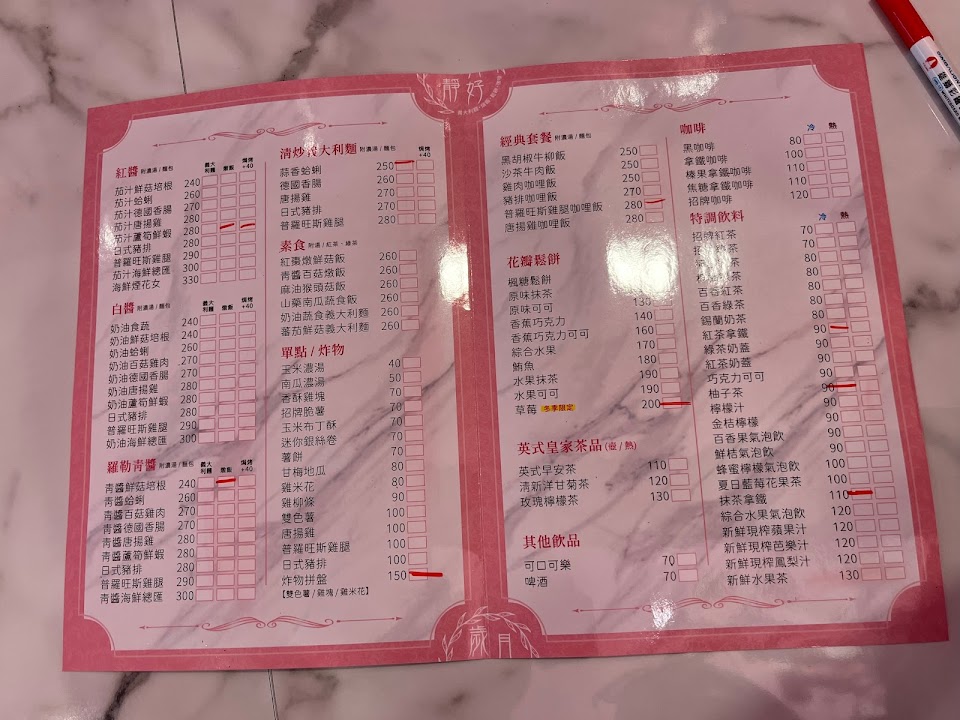 靜好
紅醬 附濃湯/麵包 義大利麵 燉飯 焗烤+40
茄汁鮮菇培根 240
茄汁蛤蜊 260
茄汁德國香腸 270
茄汁唐揚雞 280
茄汁蘆筍鮮蝦 280
日式豬排 280
普羅旺斯雞腿 290
茄汁海鮮總匯 300
海鮮煙花女 330
白醬 附濃湯/麵包 義大利麵 燉飯 焗烤+40
奶油食蔬 240
奶油鮮菇培根 240
奶油蛤蜊 260
奶油百菇雞肉 270
奶油德國香腸 270
奶油唐揚雞 280
奶油蘆筍鮮蝦 280
日式豬排 280
普羅旺斯雞腿 290
奶油海鮮總匯 300
羅勒青醬 附濃湯/麵包 義大利麵 燉飯 焗烤+40
青醬鮮菇培根 240
青醬蛤蜊 260
青醬百菇雞肉 270
青醬德國香腸 270
青醬唐揚雞 280
青醬蘆筍鮮蝦 280
日式豬排 280
普羅旺斯雞腿 290
青醬海鮮總匯 300
清炒義大利麵 附濃湯/麵包 焗烤+40
蒜香蛤蜊 250
德國香腸 260
唐揚雞 270
日式豬排 270
普羅旺斯雞腿 280
素食 附湯/紅茶、綠茶
紅棗燉鮮菇飯 260
青醬百菇燉飯 260
麻油猴頭菇飯 260
山藥南瓜蔬食飯 260
奶油蔬食義大利麵 260
蕃茄鮮菇義大利麵 260
單點/炸物
玉米濃湯 40
南瓜濃湯 50
香酥雞塊 70
招牌脆薯 70
玉米布丁酥 70
迷你銀絲卷 70
薯餅 70
甘梅地瓜 80
雞米花 80
雞柳條 90
雙色薯 100
唐揚雞 100
普羅旺斯雞腿 100
日式豬排 100
炸物拼盤 150
【雙色薯/雞塊/雞米花】
經典套餐 附濃湯/麵包
黑胡椒牛柳飯 250
沙茶牛肉飯 250
雞肉咖哩飯 250
豬排咖哩飯 270
普羅旺斯雞腿咖哩飯 280
唐揚雞咖哩飯 280
花瓣鬆餅
楓糖鬆餅
原味抹茶
原味可可 130
香蕉巧克力 140
香蕉巧克力可可 160
綜合水果 170
鮪魚 180
水果抹茶 190
水果可可 190
草莓 冬季限定 200
英式皇家茶品(壺/熱)
英式早安茶 110
清新洋甘菊茶 120
玫瑰檸檬茶 130
其他飲品
可口可樂 70
啤酒 70
咖啡 冷 熱
黑咖啡 80
拿鐵咖啡 100
榛果拿鐵咖啡 110
焦糖拿鐵咖啡 110
招牌咖啡 120
特調飲料 冷 熱
招牌紅茶 70
70
70
70
百香紅茶 80
百香綠茶 80
錫蘭奶茶 80
紅茶拿鐵 90
綠茶奶蓋 90
紅茶奶蓋 90
巧克力可可 90
柚子茶 90
檸檬汁 90
金桔檸檬 90
百香果氣泡飲 90
鮮桔氣泡飲 90
蜂蜜檸檬氣泡飲 100
夏日藍莓花果茶 100
抹茶拿鐵 110
綜合水果氣泡飲 120
新鮮現榨蘋果汁 120
新鮮現榨芭樂汁 120
新鮮現榨鳳梨汁 120
新鮮水果茶 130
歲月